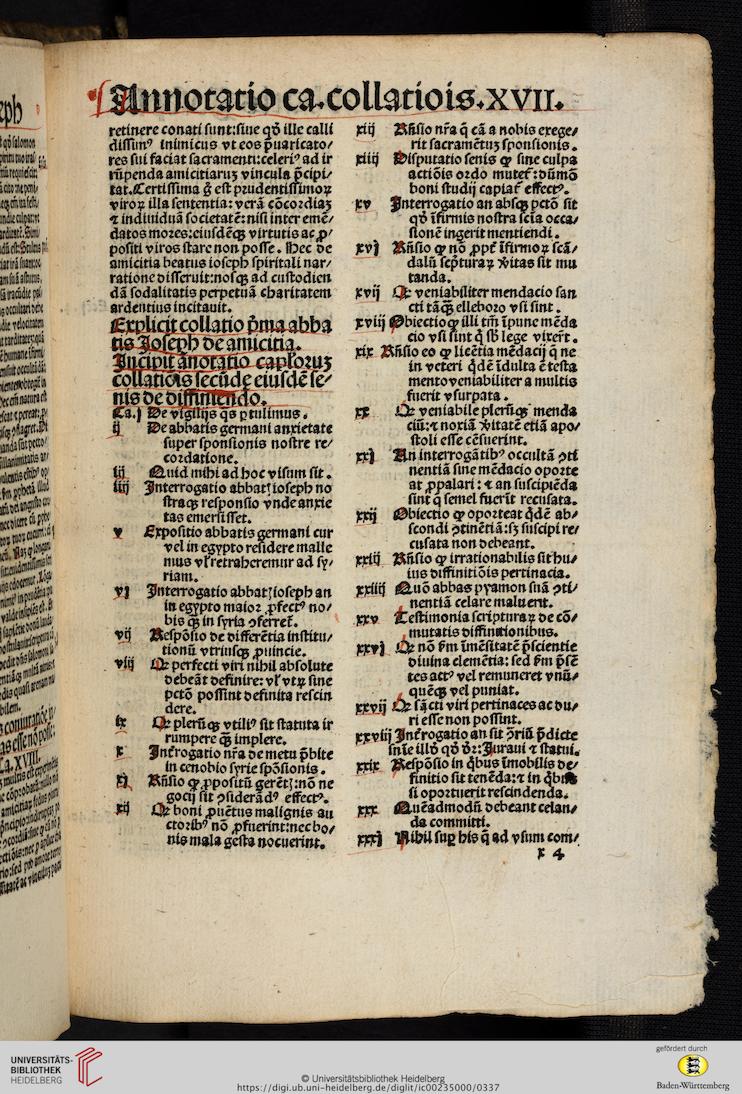 Annotatio ca.collatiõis.XVII.
retinere conati sunt:siue qꝺ̃ ille calli
dissimꝰ inimicus vt eos p̃uaricato⸗
res sui faciat sacramenti:celeriꝰ ad ir
rũpenda amicitiaruꝫ vincula p̃cipi⸗
tat.Certissima g̃ est prudentissimoꝝ
viroꝝ illa sententia: verã cõcordiaꝫ
⁊ indiuiduã societatẽ: nisi inter emẽ⸗
datos mores:eiusdẽqꝫ virtutis ac ꝓ⸗
positi viros stare non posse. Hec de
amicitia beatus ioseph spiritali nar⸗
ratione disseruit:nosqꝫ ad custodien
dã sodalitatis perpetuã charitatem
ardentius incitauit.
Explicit collatio p̃ma abba
tis Joseph de amicitia.
Incipit ãnotatio capl'oruꝫ
collatiõis secũde eiusdẽ se⸗
nis de diffiniendo.
Ca.j De vigilijs qs ptulimus.
ij De abbatis germani anxietate
super sponsionis nostre re⸗
cordatione.
iij Quid mihi ad hoc visum sit.
iiij Interrogatio abbatꝭ ioseph no
straqꝫ responsio vnde anxie
tas emersisset.
v Expositio abbatis germani cur
vel in egypto residere malle
mus vl' retraheremur ad sy⸗
riam.
vj Interrogatio abbatꝭ ioseph an
in egypto maior ꝓfectꝰ no⸗
bis qꝫ̃ in syria ꝯferret̃.
vij Respõsio de differẽtia institu⸗
tionũ vtriusqꝫ ꝓuincie.
viij Qꝛ perfecti viri nihil absolute
debeãt definire: vl' vtꝝ sine
pctõ possint definita rescin
dere.
ix Qꝛ plerũqꝫ vtiliꝰ sit statuta ir
rumpere qꝫ̃ implere.
x Int̃rogatio nr̃a de metu p̃bite
in cenobio syrie spõsionis.
xj Rñsio qꝙ ꝓpositũ gerẽtꝭ:nõ ne
gocij sit ꝯsiderãdꝰ effectꝰ.
xij Qꝛ boni ꝓuẽtus malignis au
ctoribꝰ nõ ꝓfuerint:nec bo⸗
nis mala gesta nocuerint.
xiij Rñsio nr̃a q̃ cã a nobis exege⸗
rit sacramẽtuꝫ sponsionis.
xiiij Disputatio senis qꝙ sine culpa
actiõis ordo mutet̃:dũmõ
boni studij capiat̃ effectꝰ.
xv Interrogatio an absqꝫ pctõ sit
qꝺ̃ ĩfirmis nostra scĩa occa⸗
sionẽ ingerit mentiendi.
xvj Rñsio qꝙ nõ ꝓpt̃ ĩfirmoꝝ scã⸗
dalũ scp̃turaꝝ v̾itas sit mu
tanda.
xvij Qꝛ veniabiliter mendacio san
cti tãqꝫ elleboro vsi sint.
xviij Obiectio qꝙ illi tm̃ ĩpune mẽda
cio vsi sint q̃ sb̃ lege vixer̃t.
xix Rñsio eo qꝙ licẽtia mẽdacij q̃ ne
in veteri q̃dẽ ĩdulta ẽ testa
mento veniabiliter a multis
fuerit vsurpata.
xx Qꝛ veniabile plerũqꝫ menda
ciũ:⁊ noxiã v̾itatẽ etiã apo⸗
stoli esse cẽsuerint.
xxj An interrogãtibꝰ occultã ꝯti
nentiã sine mẽdacio oporte
at ꝓpalari: ⁊ an suscipiẽda
sint q̃ semel fuerit̃ recusata.
xxij Obiectio qꝙ oporteat q̃dẽ ab⸗
scondi ꝯtinẽtiã:sꝫ suscipi re⸗
cusata non debeant.
xxiij Rñsio qꝙ irrationabilis sit hu⸗
ius diffinitiõis pertinacia.
xxiiij Quõ abbas pyamon suã ꝯti⸗
nentiã celare maluerit.
xxv Testimonia scripturaꝝ de cõ⸗
mutatis diffinitionibus.
xxvj Qꝛ nõ ẜm ĩmẽsitatẽ p̃scientie
diuina clemẽtia: sed ẜm p̃sẽ
tes actꝰ vel remuneret vnũ⸗
quẽqꝫ vel puniat.
xxvij Qꝛ sãcti viri pertinaces ac du⸗
ri esse non possint.
xxviij Int̃rogatio an sit ꝯr̃iũ p̃dicte
snĩe illõ qꝺ̃ dr̃:Iuraui ⁊ statui.
xxix Respõsio in q̃bus ĩmobilis de⸗
finitio sit tenẽda:⁊ in q̃bꝰ
si oportuerit rescindenda.
xxx Quẽadmodũ debeant celan⸗
da committi.
xxxj Nihil sup̱ his q̃ ad vsum com⸗
x 4
UNIVERSITÄTS-
BIBLIOTHEK
HEIDELBERG
© Universitätsbibliothek Heidelberg
https://digi.ub.uni-heidelberg.de/diglit/ic00235000/0337
gefördert durch
Baden-Württemberg